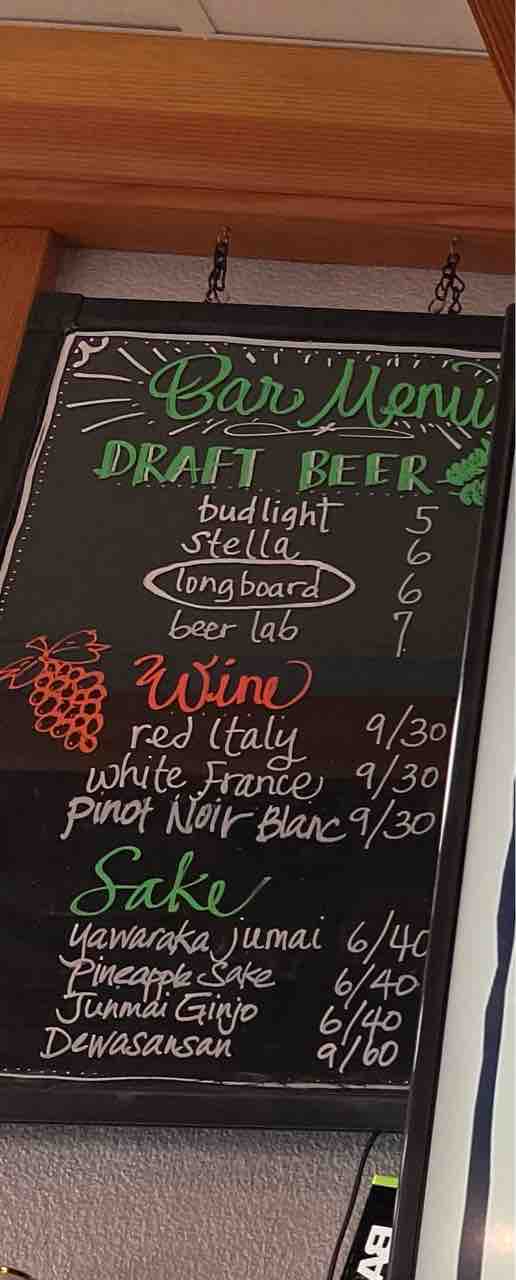 Bar Menu
DRAFT BEER
bud light 5
stella 6
longboard 6
beer lab 7
Wine
red Italy 9/30
white France 9/30
Pinot Noir Blanc 9/30
Sake
yawaraka jumai 6/40
Pineapple Sake 6/40
Junmai Ginjo 6/40
Dewasansan 9/60
AB